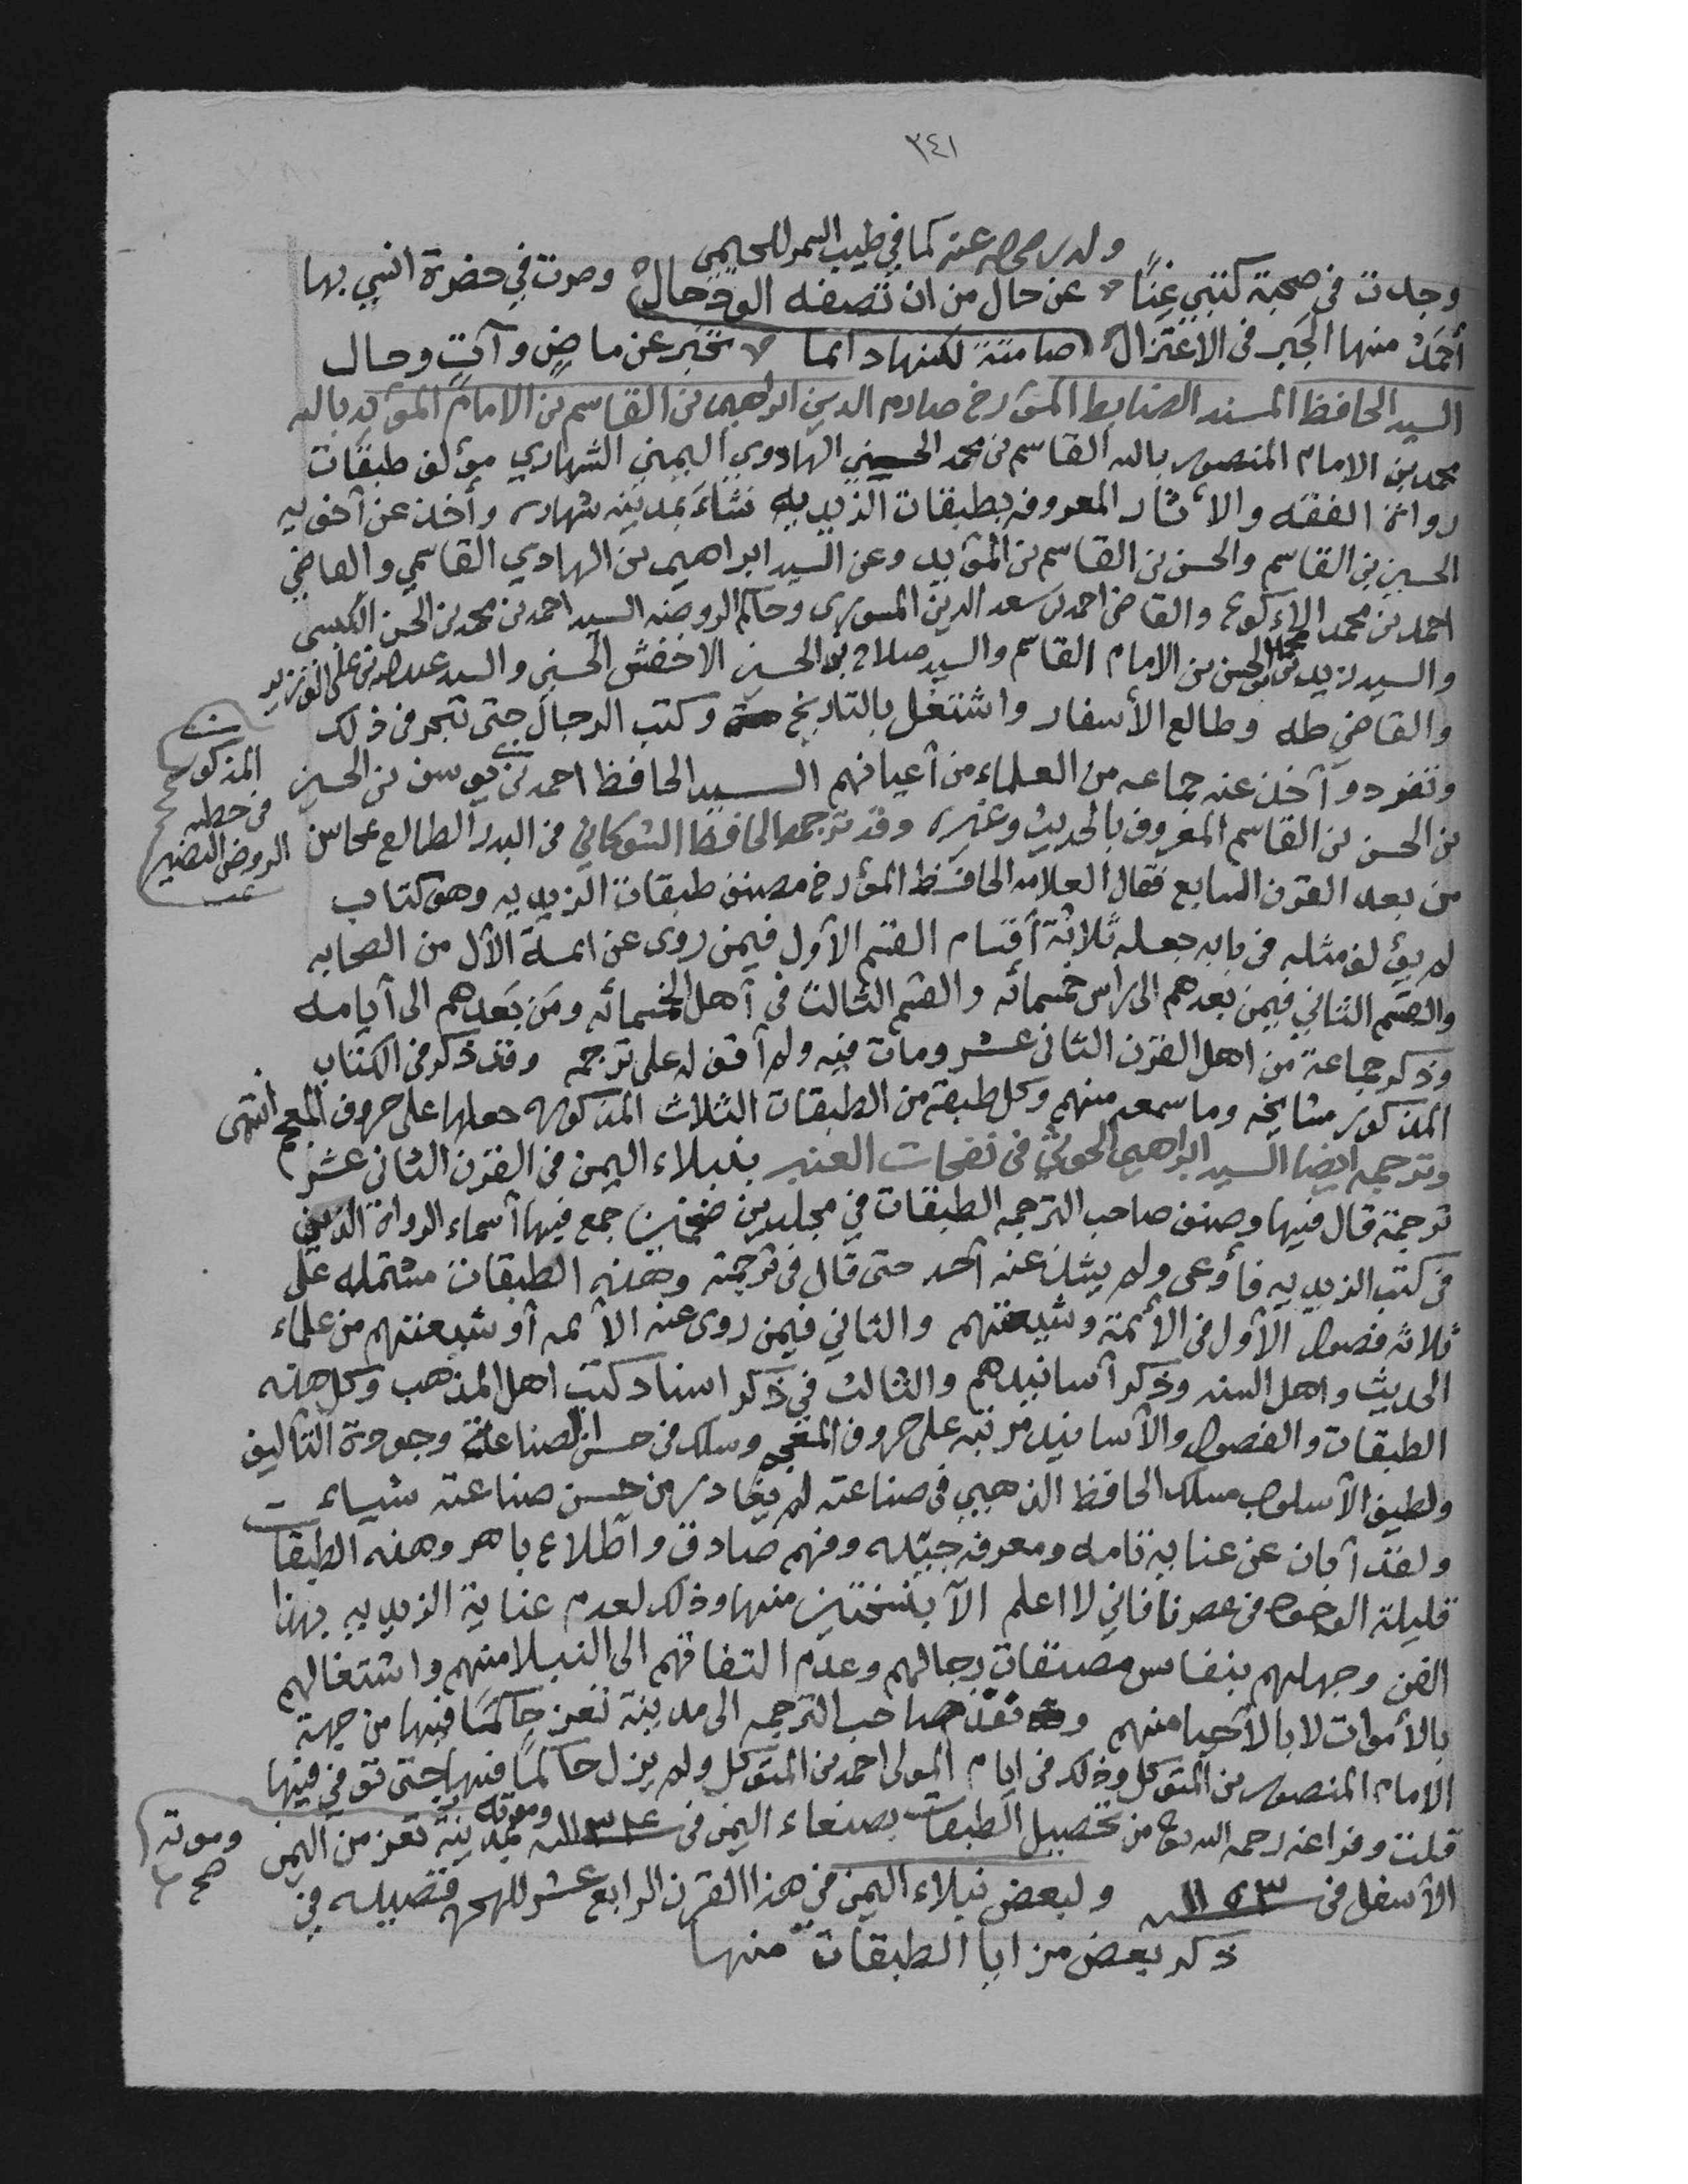 ٣٤١
وله رضي الله عنه كما في طيب السمر للحيمي
وجدت في صحبة كتبي غنًا ٧ عن حال من ان تصفه الود حال وصرت في حضرة انسي بها
أحمَدُ منها الجَبر في الاعتزال صامتةً لكنها دائما ٧ تخبر عن ماضٍ وآتٍ وحال
السيد الحافظ المسند الضابط المؤرخ صارم الدين ابراهيم بن القاسم بن الامام المؤيد بالله
محمد بن الامام المنصور بالله القاسم بن محمد الحسني الهادوي اليمني الشهاري مؤلف طبقات
رواة الفقه والأثار المعروفه بطبقات الزيديه نشاء بمدينه شهاره وأخذ عن آخويه
الحسين بن القاسم والحسن بن القاسم بن المؤيد وعن السيد ابراهيم بن الهادي القاسمي والقاضي
احمد بن محمد الاكوع والقاضي احمد بن سعد الدين المسوري وحاكم الروضه السيد احمد بن محمد بن الحسن الكبسي
والسيد زيد بن محمد بن الحسن بن الامام القاسم والسيد صلاح بن الحسين الاخفش الحسني والسيد عبدالله بن علي الوزير
والقاضي طه وطالع الأسفار واشتغل بالتاريخ وكتب الرجال حتى تبحر في ذلك
وتفرد وآخذ عنه جماعه من العلماء من آعيانهم السيد الحافظ احمد بن يوسف بن الحسين
بن الحسن بن القاسم المعروف بالحديث وغيره وقد ترجمه الحافظ الشوكاني في البدر الطالع بمحاسن
من بعد القرن السابع فقال العلامه الحافظ المؤرخ مصنف طبقات الزيديه وهو كتاب
لم يؤلف مثله في بابه جعله ثلاثة أقسام القسم الأول فيمن روى عن ائمة الآل من الصحابه
والقسم الثاني فيمن بعدهم الى راس خمسمائه والقسم الثالث في آهل الخمسمائه ومَن بَعدهم الى آيامه
وذكر جماعة من اهل القرن الثاني عشر ومات فيه ولم آقف له على ترجمه وقد ذكر في الكتاب
المذكور مشايخه وما سمعه منهم وكل طبقه من الطبقات الثلاث المذكوره جعلها على حروف المعجم انتهى
وترجمه ايضا السيد ابراهيم الحوثي في نفحات العنبر بنبلاء اليمن في القرن الثاني عشر
ترجمة قال فيها وصنف صاحب الترجمه الطبقات في مجلدين ضخمين جمع فيها آسماء الرواة الذين
في كتب الزيديه فأوعى ولم يشذ عنه آحد حتى قال في ترجمته وهذه الطبقات مشتمله على
ثلاثه فصول الآول في الأئمة وشيعتهم والثاني فيمن روى عنه الأئمه آو شيعتهم من علماء
الحديث واهل السنه وذكر آسانيدهم والثالث في ذكر اسناد كتب اهل المذهب وكل هذه
الطبقات والفصول والآسانيد مرتبه على حروف المعجم وسلك في حسن الصناعة وجودة التآليف
ولطيف الآسلوب مسلك الحافظ الذهبي في صناعته لم يغادر من حسن صناعته شياء
ولقد آبان عن عناية تامه ومعرفه جبيله وفهم صادق وآطلاع باهر وهذه الطبقات
قليلة الوجود في عصرنا فاني لا اعلم الآ بنسختين منها وذلك لعدم عناية الزيديه بهذا
الفن وجهلهم بنفائس مصنفات رجالهم وعدم التفاتهم الى النبلا منهم واشتغالهم
بالأموات لا بالآحيا منهم ونفذ صاحب الترجمه الى مدينة تعز حاكمًا فيها من جهة
الامام المنصور بن المتوكل وذلك في ايام المولى احمد بن المتوكل ولم يزل حاكمًا فيها حتى توفي فيها
قلت وفراغه رحمه الله تع من تحصيل الطبقات بصنعاء اليمن في ١١٣٤ سنه وموته بمدينة تعز من اليمن
الآسفل في ١١٥٣ سنه ولبعض نبلاء اليمن في هذا القرن الرابع عشر للهجره قصيده في
ذكر بعض مزايا الطبقات منها
المذكور
في خطبه
الروض النضير
وموته
صح